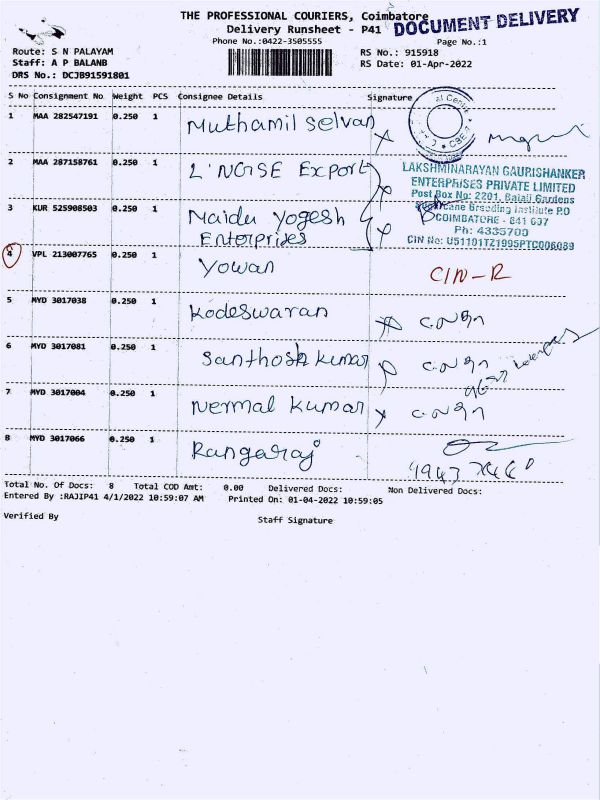 THE PROFESSIONAL COURIERS, Coimbatore
DOCUMENT DELIVERY
Delivery Runsheet - P41
Phone No.:0422-3505555
Page No.:1
Route: S N PALAYAM
RS No.: 915918
Staff: A P BALANB
RS Date: 01-Apr-2022
DRS No.: DCJB91591801
S No Consignment No Weight PCS Consignee Details Signature
1 MAA 282547191 0.250 1 Muthamil Selvan
2 MAA 287158761 0.250 1 L'NGISE Export
LAKSHMINARAYAN GAURISHANKER
ENTERPRISES PRIVATE LIMITED
Post Box No: 2201, Balaji Gardens
Sugarcane Breeding Institute P.O
COIMBATORE - 641 007
Ph: 4335700
CIN No: U51101TZ1995PTC006089
3 KUR 525908503 0.250 1 Naidu Yogesh
Enterprises
4 VPL 213007765 0.250 1 Yowan CIN-R
5 MYD 3017038 0.250 1 Kodeswaran
6 MYD 3017081 0.250 1 Santhosh Kumar
7 MYD 3017004 0.250 1 Nermal Kumar
8 MYD 3017066 0.250 1 Rangaraj
Total No. Of Docs: 8 Total COD Amt: 0.00 Delivered Docs: Non Delivered Docs:
Entered By :RAJIP41 4/1/2022 10:59:07 AM Printed On: 01-04-2022 10:59:05
Verified By
Staff Signature